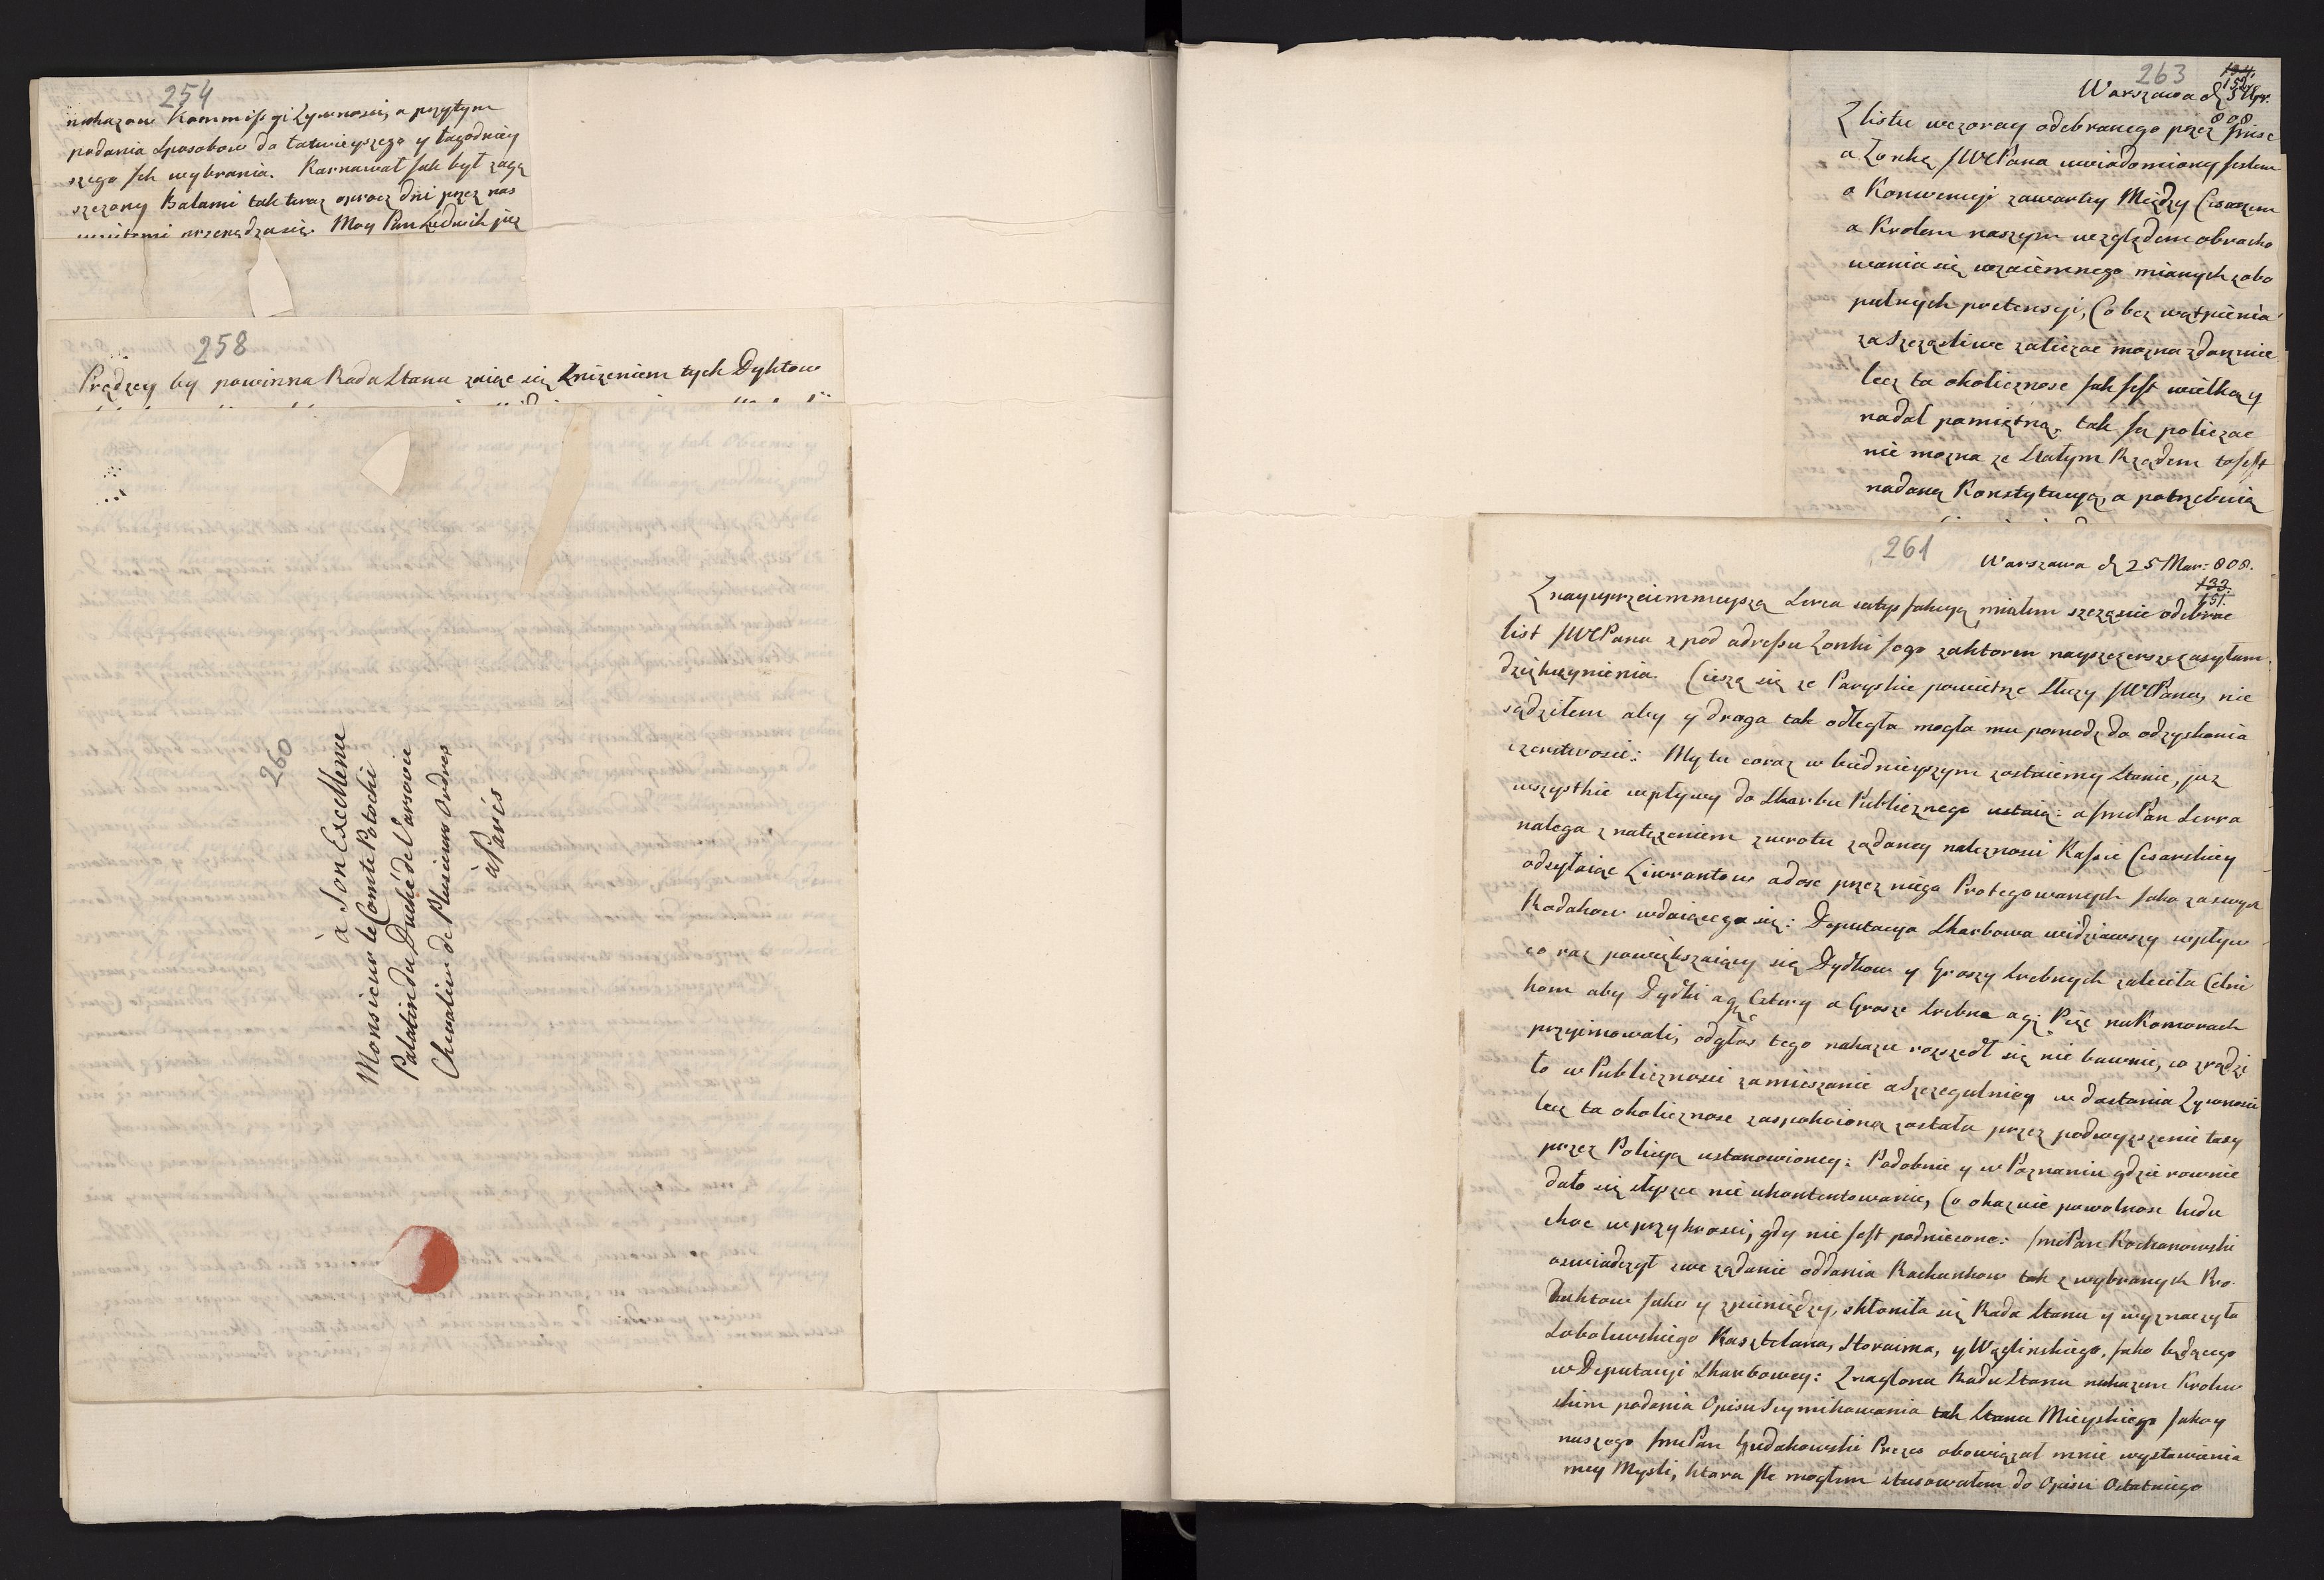 254
nakazow Kommissyi Zywnosci, a przytym
podania sposobow do łatwieyszego y łagodniey
szego Jch wybrania. Karnawał Jak był zagę
szczony Balami tak teraz oprocz dni przez nas
Moy Pan Ludwik już
258
Prędzey by powinna Rada Stanu zaiąc się Zniżeniem tych Dytkow
260
à Son Excellence
Monsieur le Comte Potocki
Palatin du Duché de Varsovie
Chevalier de Plusieurs Ordres
à Paris
263
134.
152.
Warszawa d 5 Apr.
808
Z listu wczoray odebranego przez
a Zonkę JWPana uwiadomiony Jestem
o Konwencyi zawartey Między Cesarzem
a Krolem naszym względem obracho
wania się wzaiemnego mianych zobo
pulnych pretensyi, Co bez wątpienia
za szczęsliwe zaliczac mozna zdarznie
lecz ta okolicznosc Jak Jest wielką y
nadal pamiętną, tak Ją policzac
nie mozna ze Stałym Rządem to Jest
nadaną Konstytucyą, a potrzebuią
261
Warszawa d 25 Mar: 808.
133.
151.
Z nayuprzeimmeyszą Serca satysfakcyą miałem szczęscie odebrac
list JWPana z pod adressu Zonki Jego za ktoren nayszczersze zasyłam
dziękczynienia. Cieszę się ze Paryskie powietrze Służy JWPanu, nie
sądziłem aby y droga tak odległa mogła mu pomodz do odzyskania
czerstwosci: My tu coraz w biednieyszym zostaiemy Stanie, juz
wszystkie wpływy do Skarbu Publicznego ustaią: a JmcPan Serra
nalega z natężeniem zwrotu żądaney należnosci Kassie Cesarskiey
odsyłaiąc Liwrantow a dosc przez niego Protegowanych Jako za swych
Rodakow wdaiącego się: Deputacya Skarbowa widziawszy wpływ
co raz powiększaiący się Dydkow y Groszy srebnych zaleciła Celni
kom aby Dydki a gr Cztery a Grosze srebne a gr: Pięc na Komorach
przyimowali, odgłos tego nakazu rozszedł się nie bawnie, co zrądzi
ło w Publicznosci zamieszanie a Szczegulniey w dostania Zywnosci
lecz ta okolicznosc zaspokoioną została przez podwyzszenie taxy
przez Policyą ustanowioney: Podobnie y w Poznaniu gdzie rownie
dało się słyszec nie ukontentowanie, Co okazuie powolnosc ludu
choc w przykrosci, gdy nie Jest podniecone: JmcPan Kochanowski
oswiadczył swe żądanie oddania Rachunkow tak z wybranych Pro-
duktow Jako y z pieniędzy, skłoniła się Rada Stanu y wyznaczyła
Sobolewskiego Kasztelana, Horaima, y Węglinskiego, Jako będącego
w Deputacyi Skarbowey: Znaglona Rada Stanu nakazem Krolew
skim podania Opisu Seymikowania tak Stanu Mieyskiego Jako y
naszego JmcPan Gudakowski Prezes obowiązał mnie wystawienia
mey Mysli, ktora Jle mogłem stusowałem do Opisu Ostatniego